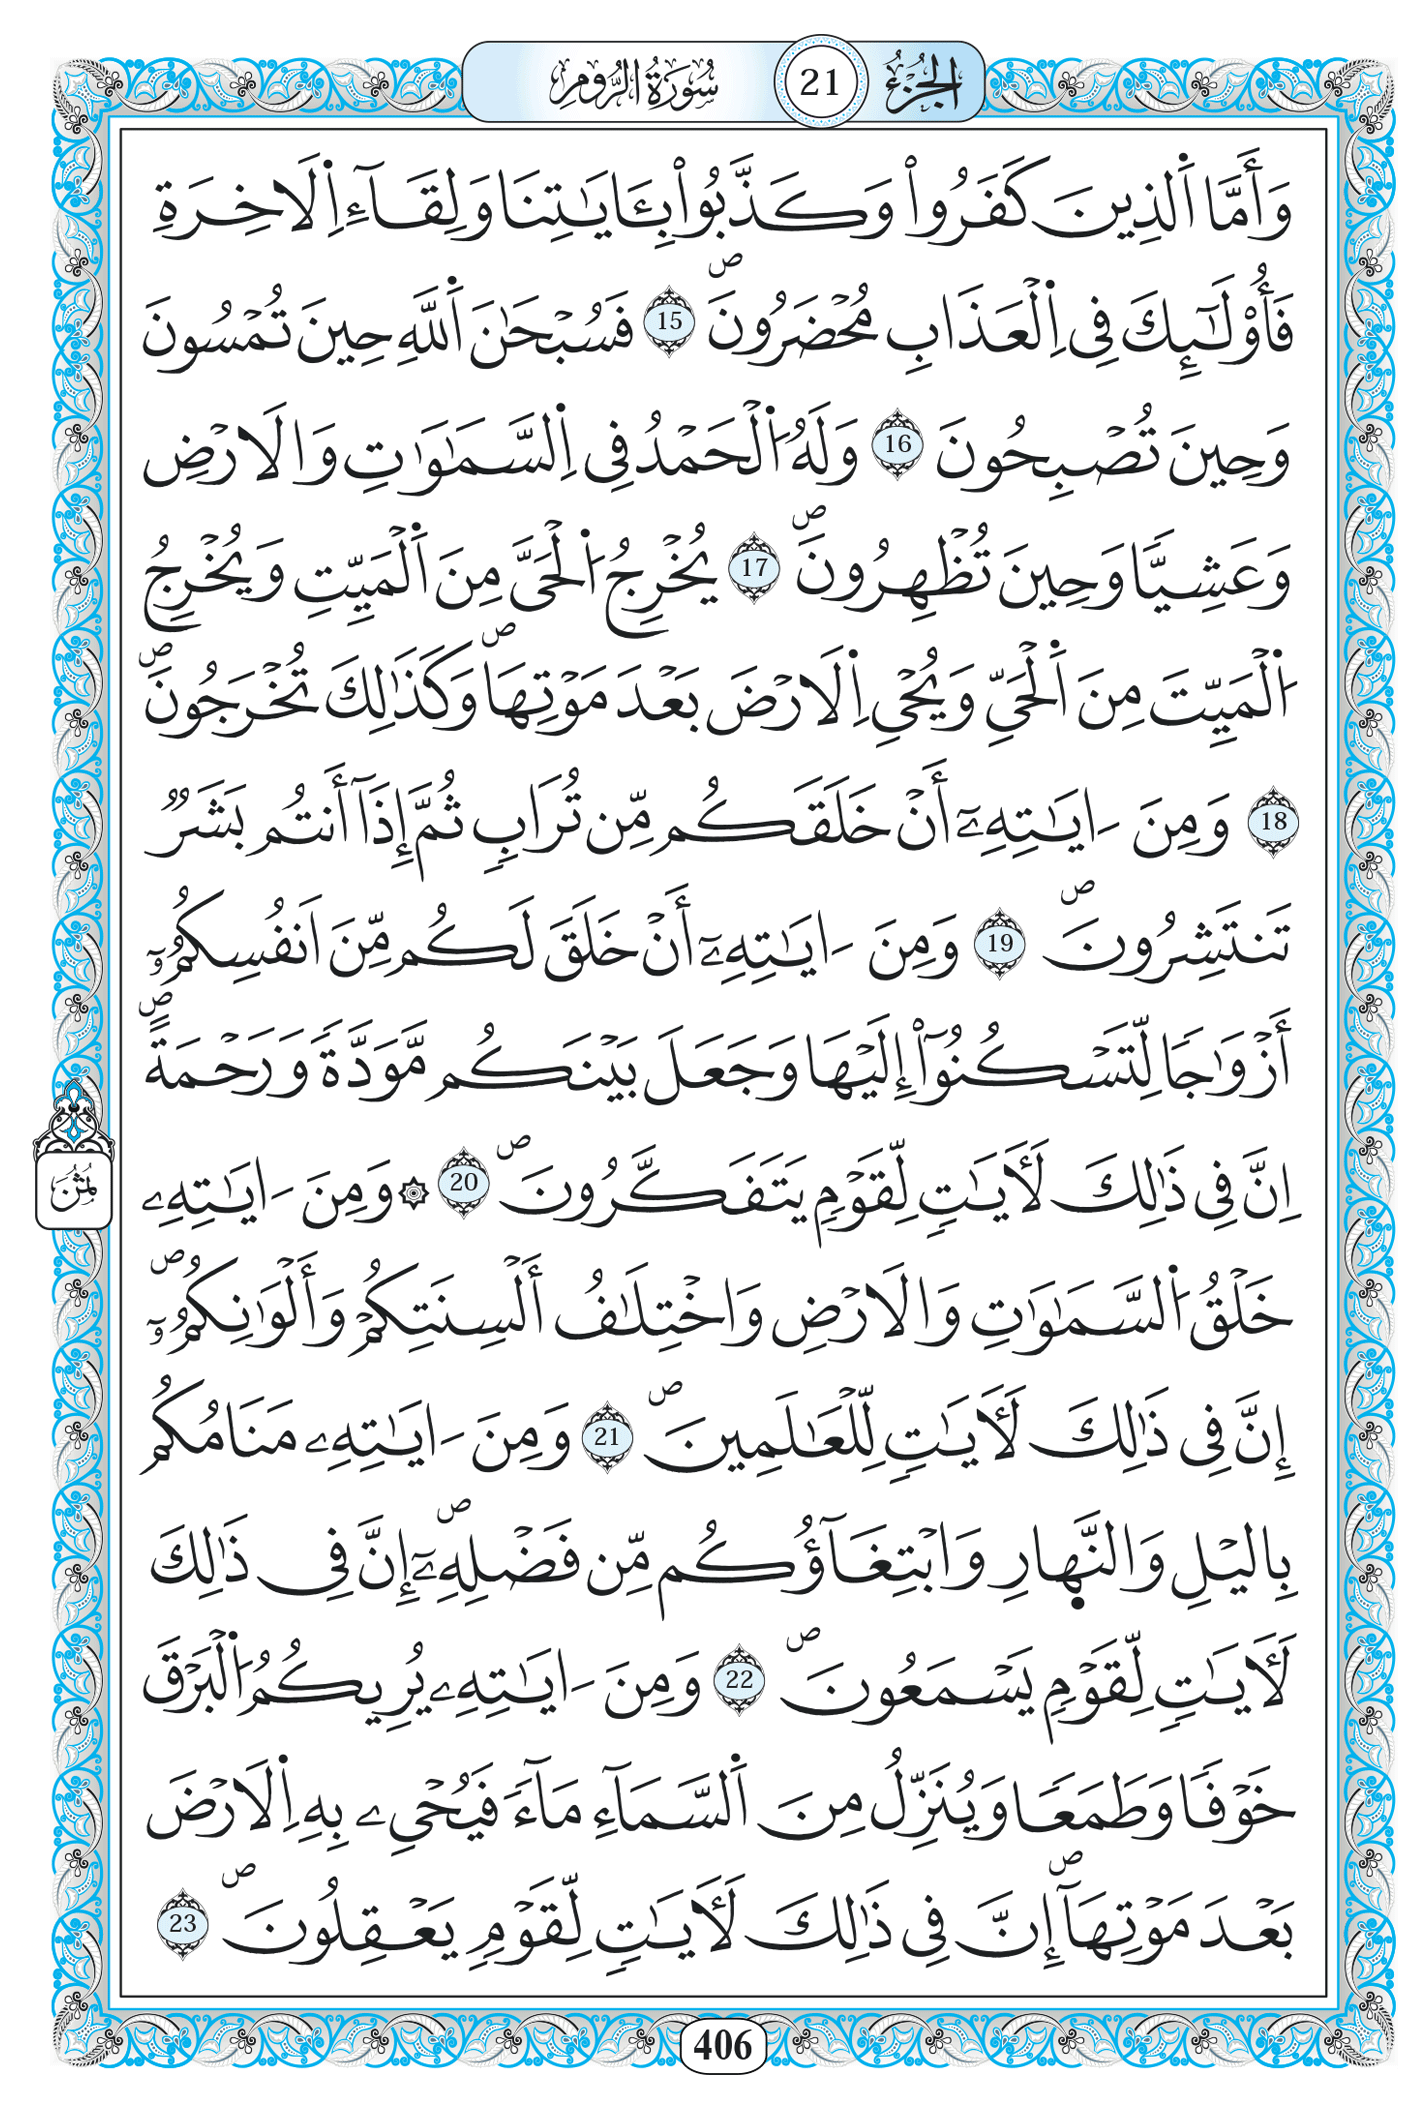 الجزء 21 سورة الروم
وَأَمَّا اَ۬لذِينَ كَفَرُواْ وَكَذَّبُواْ بِـَٔايَٰتِنَا وَلِقَآءِ اِ۬لَاخِرَةِ
فَأُوْلَٰٓئِكَ فِي اِ۬لْعَذَابِ مُحْضَرُونَۖ 15 فَسُبْحَٰنَ اَ۬للَّهِ حِينَ تُمْسُونَ
وَحِينَ تُصْبِحُونَ 16 وَلَهُ اُ۬لْحَمْدُ فِي اِ۬لسَّمَٰوَٰتِ وَالَارْضِ
وَعَشِيّٗا وَحِينَ تُظْهِرُونَۖ 17 يُخْرِجُ اُ۬لْحَيَّ مِنَ اَ۬لْمَيِّتِ وَيُخْرِجُ
اُ۬لْمَيِّتَ مِنَ اَ۬لْحَيِّ وَيُحْيِ اِ۬لَارْضَ بَعْدَ مَوْتِهَاۖ وَكَذَٰلِكَ تُخْرَجُونَۖ
18 وَمِنَ اٰيَٰتِهِۦٓ أَنْ خَلَقَكُم مِّن تُرَابٖ ثُمَّ إِذَآ أَنتُم بَشَرٞ
تَنتَشِرُونَۖ 19 وَمِنَ اٰيَٰتِهِۦٓ أَنْ خَلَقَ لَكُم مِّنَ اَنفُسِكُمُۥٓ
أَزْوَٰجٗا لِّتَسْكُنُوٓاْ إِلَيْهَا وَجَعَلَ بَيْنَكُم مَّوَدَّةٗ وَرَحْمَةًۖ
اِنَّ فِي ذَٰلِكَ لَأٓيَٰتٖ لِّقَوْمٖ يَتَفَكَّرُونَۖ 20 ۞ وَمِنَ اٰيَٰتِهِۦ
ثُمُن
خَلْقُ اُ۬لسَّمَٰوَٰتِ وَالَارْضِ وَاخْتِلَٰفُ أَلْسِنَتِكُمْ وَأَلْوَٰنِكُمُۥٓۖ
إِنَّ فِي ذَٰلِكَ لَأٓيَٰتٖ لِّلْعَٰلَمِينَۖ 21 وَمِنَ اٰيَٰتِهِۦ مَنَامُكُم
بِاليْلِ وَالنَّهارِ وَابْتِغَآؤُكُم مِّن فَضْلِهِۦٓۖ إِنَّ فِي ذَٰلِكَ
لَأٓيَٰتٖ لِّقَوْمٖ يَسْمَعُونَۖ 22 وَمِنَ اٰيَٰتِهِۦ يُرِيكُمُ اُ۬لْبَرْقَ
خَوْفٗا وَطَمَعٗا وَيُنَزِّلُ مِنَ اَ۬لسَّمَآءِ مَآءٗ فَيُحْيِۦ بِهِ اِ۬لَارْضَ
بَعْدَ مَوْتِهَآۖ إِنَّ فِي ذَٰلِكَ لَأٓيَٰتٖ لِّقَوْمٖ يَعْقِلُونَۖ 23
406